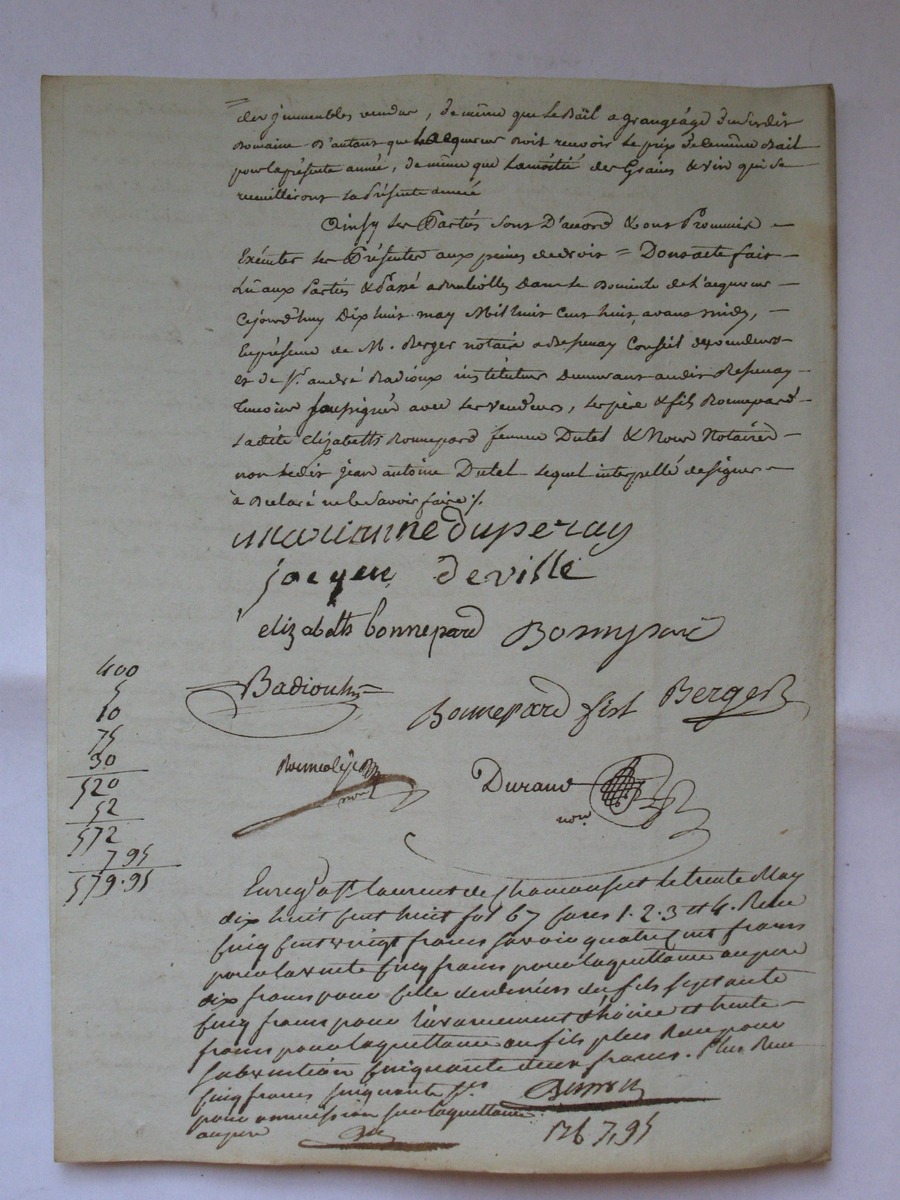 des jmmeubles vendus, de même que le Bail a grangéage du susdit
Domaine D'autant que l'acquereur doit recevoir le prix de le même Bail
pour la présente année, de même que la moitié des Grains & vin qui se
recuilliront la Présente année
Ainsy les Parties sont D'accord & ont Promis
Exécuter les Présentes aux peines de droit = Dont acte fait
Lû aux Parties & Passé dans le Domicile de l'acquereur
Cejourd'huy Dix huit may Mil huit Cent huit, avant midy,
En présence de M. Berger notaire a Conseil des vendeurs
et de Sr. andré Badioux instituteur Demeurant audit
Temoins soussignés avec les vendeurs, les père & fils Bonnepard
Ladite Elizabeth Bonnepard femme Dutel & Nous Notaires
non ledit jean antoine Dutel lequel interpellé de signer
à Declaré ne le savoir faire ./.
marianne duperay
jacques deville
elizabeth bonnepard Bonnepard
Badioux
Bonnepard fist Berger
nore
Durand
nore
400
5
10
75
30
520
52
572
7 95
579.95
Enregé a St. laurent de Chamousset le trente May
dix huit cent huit fol 67 cases 1. 2. 3 et 4. Reçu
cinq cent vingt francs savoir quatre cent francs
pour la vente cinq francs pour la quittance au pere
dix francs pour celle des deniers du fils septante
cinq francs pour et trente
francs pour la quittance au fils plus Reçu pour
subvention cinquante deux francs. Plus Reçu
cinq francs cinquante ces
pour ommission sur la quittance
au pere
7,95